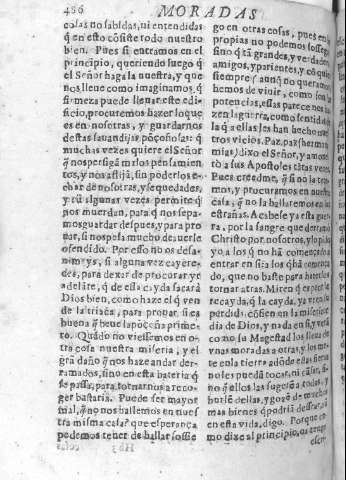 486 MORADAS
cosas no sabidas, ni entendidas
q̃ en esto cõsiste todo nuestro
bien. Pues si entramos en el
principio, queriendo luego q̃
el Señor haga la nuestra, y que
nos lleue como imaginamos, q̃
firmeza puede lleuar este edi-
ficio, procuremos hazer lo que
es en nosotras, y guardarnos
destas sauandijas põçoñosas: q̃
muchas vezes quiere el Señor
q̃ nos persigã malos pensamien-
tos, y nos aflijã, sin poderlos e-
char de nosotras, y sequedades,
y aũ algunas vezes permite q̃
nos muerdan, para q̃ nos sepa-
mos guardar despues, y para pro
uar, si nos pesa mucho de auerle
ofendido. Por esso no os desa-
nimeys, si alguna vez cayere-
des, para dexar de procurar yr
adelãte, q̃ de essa cayda sacarà
Dios bien, como haze el q̃ ven
de la triaca, para prouar, si es
buena q̃ beue la põçoña prime-
ro. Quãdo no viessemos en o-
tra cosa nuestra miseria, y el
grã daño q̃ nos haze andar der-
ramados, sino en esta bateria q̃
se passa, para tornarnos a reco-
ger bastaria. Puede ser mayor
mal, q̃ no nos hallemos en nues
tra misma casa? que esperança
podemos tener de hallar sossie
go en otras cosas, pues en las
propias no podemos sossegar,
sino q̃ tã grandes, y verdaderos
amigos, y parientes, y cõ quien
siempre (aunq̃ no queramos)
hemos de viuir, como son las
potencias, essas parece nos ha-
zen la guerra, como sentidas de
la q̃ a ellas les han hecho nues-
tros vicios. Paz, paz (hermanas
mias) dixo el Señor, y amones-
tò a sus Apostoles tãtas vezes.
Pues creedme, q̃ si no la tene-
mos, y procuramos en nuestra
casa, q̃ no la hallaremos en las
estrañas. Acabese ya esta guer-
ra, por la sangre que derramò
Christo por nosotros, y lo pido
yo a los q̃ no hã començado a
entrar en si: a los q̃ hã començã
do, que no baste para hazerlos
tornar atras. Miren q̃ es peor la
recayda, q̃ la cayda, ya veen su
perdida: cõfien en la misericor
dia de Dios, y nada en si, y verã
como su Magestad los lleua de
vnas moradas a otras, y los me-
te en la tierra adõde estas fieras
no les puedã tocar, ni cãsar, si-
no q̃ ellos las sugeten a todas, y
burlẽ dellas, y gozẽ de muchos
mas bienes q̃ podriã dessear, aũ
en esta vida, digo. Porque co-
mo dixe al principio, os tengo
escri-